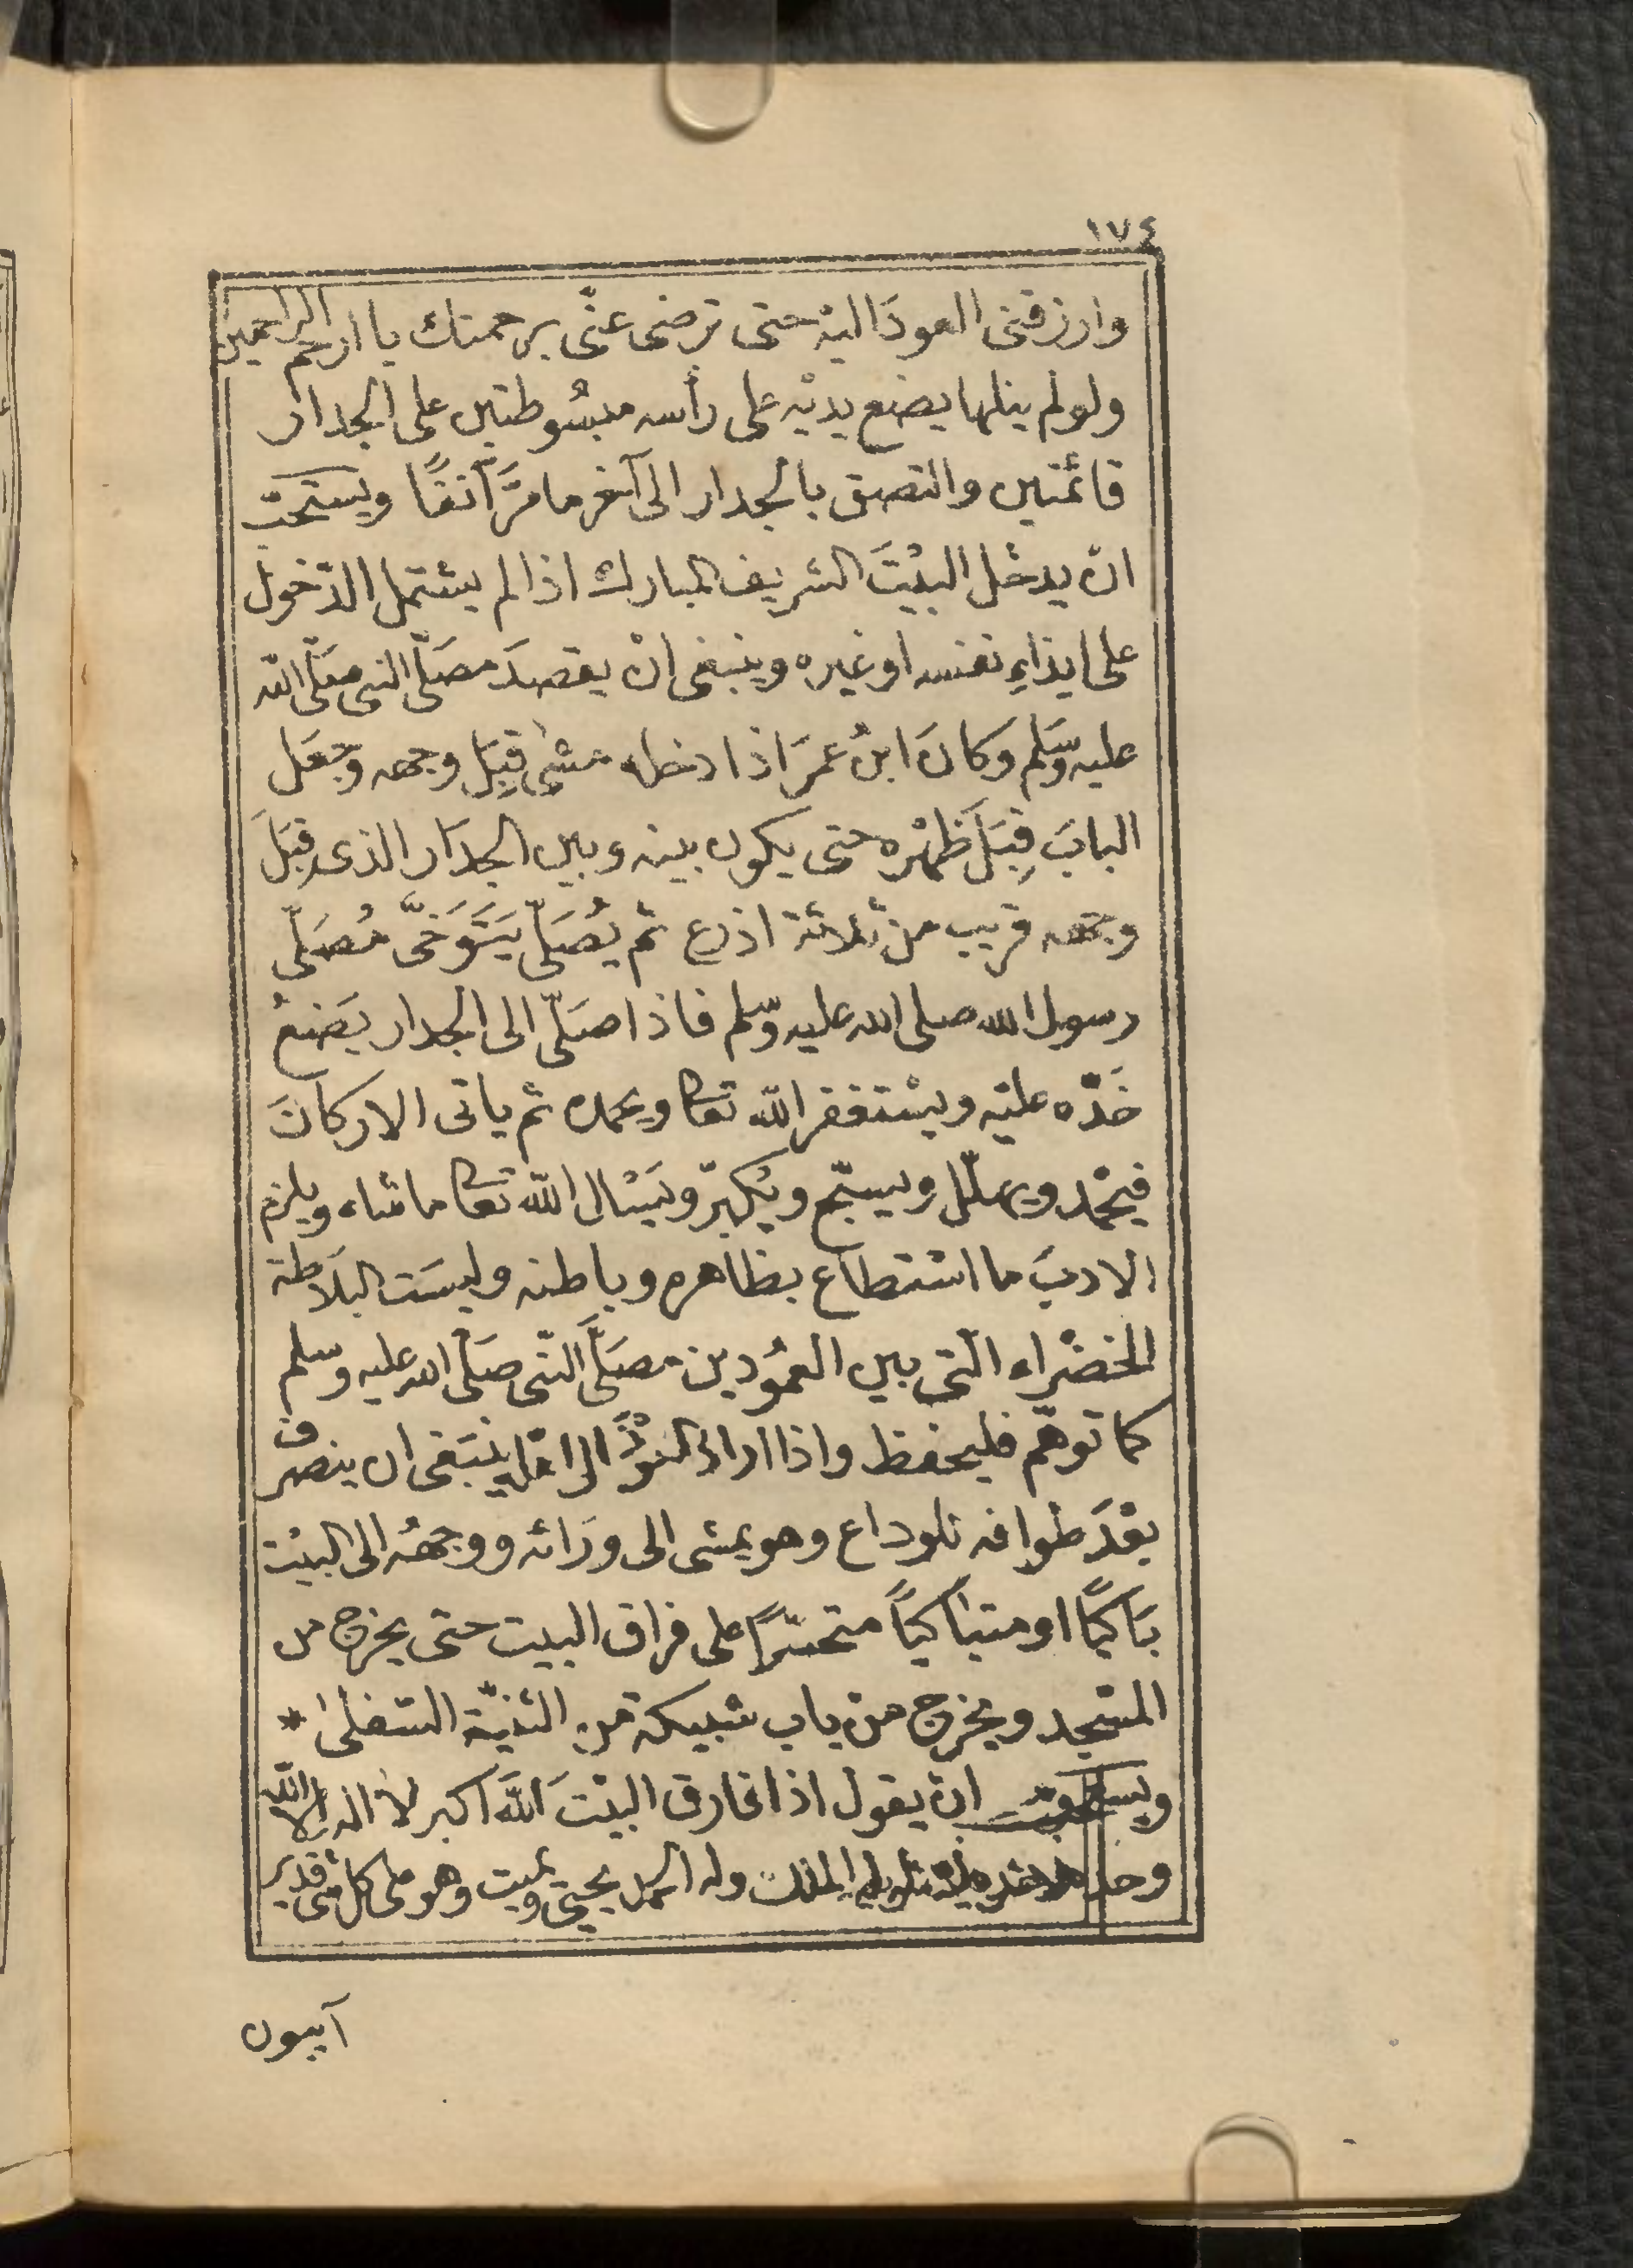 ١٧٤
وارزقنى العودَ اليْه حتى ترضى عنّى برحمتك يا ارحم الراحمين
ولو لم ينلها يضع يديْه على رأسه مبسُوطتين على الجدار
قائمتين والتصق بالجدار الى آخر ما مرَّ آنفًا ويستحبّ
ان يدخل البيْتَ الشريف المبارك اذا لم يشتمل الدّخول
على ايذاءِ نفسه او غيره وينبغى انْ يقصدَ مصَلَّى النبى صَلّى الله
عليه وسَلم وكانَ ابنُ عمَرَ اذا دخله مشىٰ قِبَل وجهه وجعَل
البابَ قِبَلَ ظهْره حتى يكون بينه وبين الجدَار الذى قِبَلَ
وجهه قريب من ثلاثة اذرع ثم يُصَلّى يَتَوَخَّى مُصَلّى
رسول الله صلى الله عليه وسّلم فاذا صَلّى الى الجدار يَضعُ
خَدّه عليْه ويسْتغفر الله تعالى ويحمده ثم ياتى الاركانَ
فيحْمد ويهلّل ويسبّح ويُكبّر ويَسْال الله تعالى ما شاء ويلزم
الادبَ ما استطاع بظاهره وباطنه وليسَت البلَاطة
الخضْراء التى بين العمُودين مصَلَّى النّبى صَلّى الله عليه وسلم
كما توهّم فليحفظ واذا اراد العَوْدَ الى اهْله ينبَغى ان ينصرف
بعْدَ طوافه للوداع وهو يمشى الى ورَائه ووجههُ الى البيْت
بَاكيًا او متبَاكيًا متحسّرًا على فراق البيت حتى يخرج من
المسْجد ويخرج من باب شبيكة من الثنيّة السّفلى *
ويستحبّ ان يقول اذا فارق البيْتَ اَللّٰه اكبر لا اله الا اللّه
وحده لا شريك له له الملك وله الحمد يحيى ويميت وهو على كل شئ قدير
آيبون